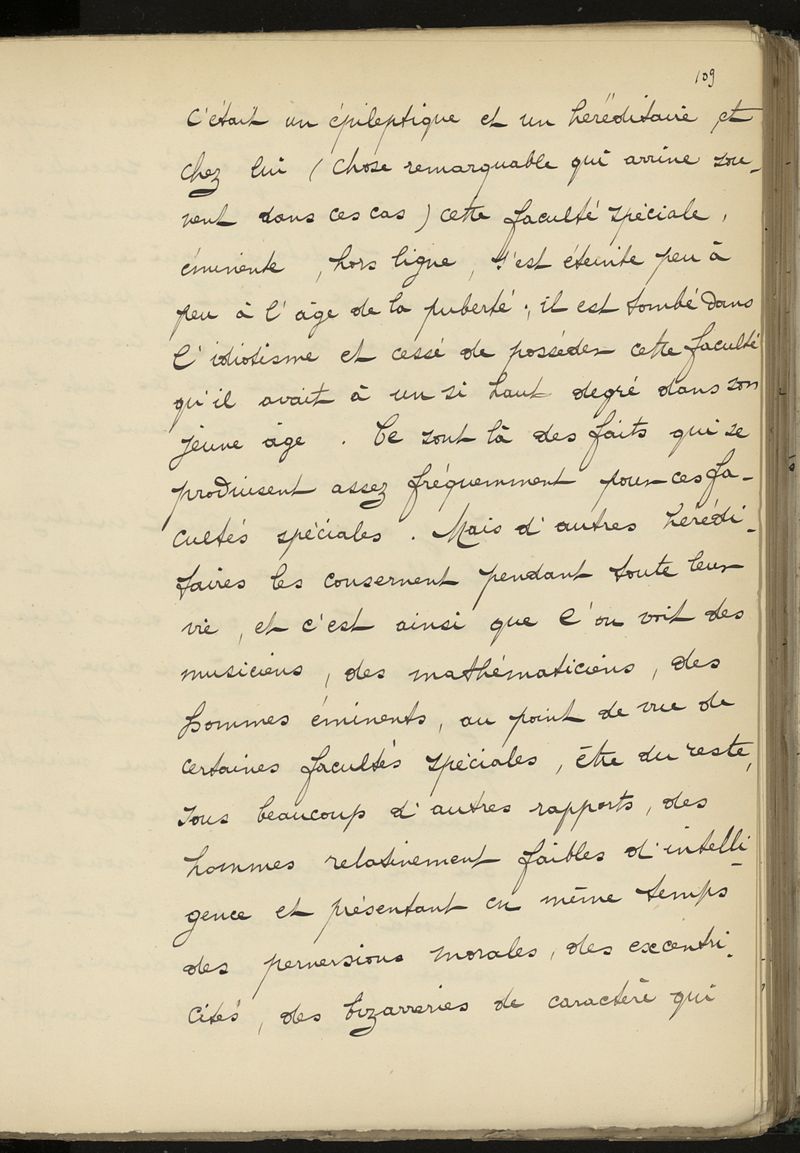 109
C'était un épileptique et un héréditaire, et
chez lui (chose remarquable qui arrive sou-
vent dans ces cas) cette faculté spéciale,
éminente, hors ligne, s'est éteinte peu à
peu à l'âge de la puberté ; il est tombé dans
l'idiotisme et cessé de posséder cette faculté
qu'il avait à un si haut degré dans son
jeune âge. Ce sont là des faits qui se
produisent assez fréquemment pour ces fa-
cultés spéciales. Mais d'autres hérédi-
taires les conservent pendant toute leur
vie, et c'est ainsi que l'on voit des
musiciens, des mathématiciens, des
hommes éminents, au point de vue de
certaines facultés spéciales, être du reste,
sous beaucoup d'autres rapports, des
hommes relativement faibles d'intelli-
gence et présentant en même temps
des perversions morales, des excentri-
cités, des bizarreries de caractère qui